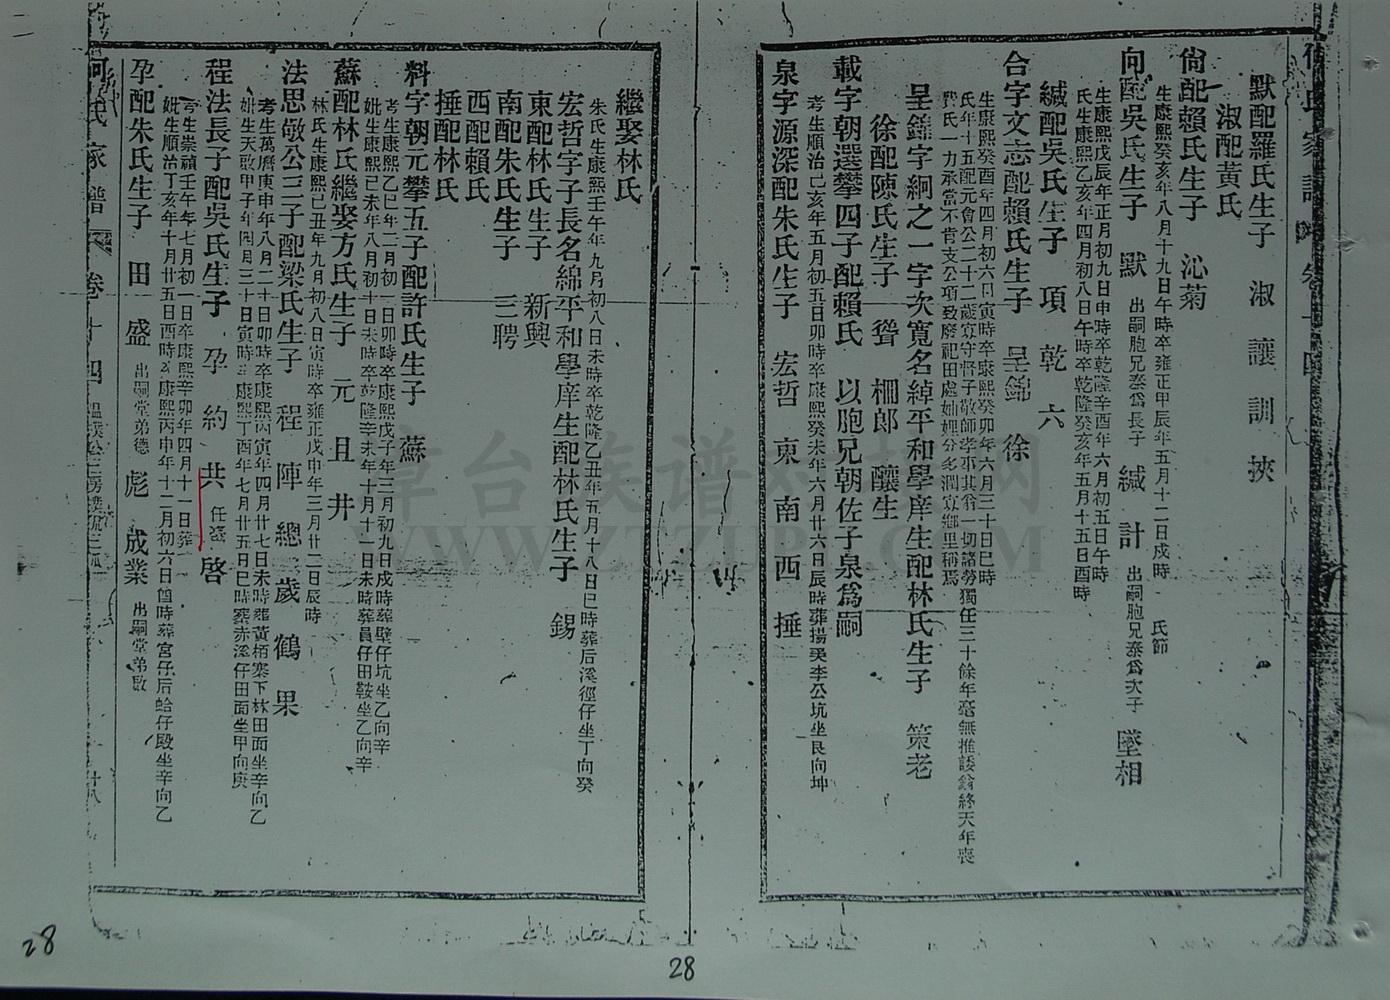 何氏家譜 卷十四
默配羅氏生子 淑 讓 訓 挾
淑配黃氏
尙配賴氏生子 沁菊
生康熙癸亥年八月十九日午時卒雍正甲辰年五月十二日戌時 氏節
向配吳氏生子 默 出嗣胞兄泰爲長子 緘 計 出嗣胞兄泰爲次子 墜相
生康熙戊辰年正月初九日申時卒乾隆辛酉年六月初五日午時
氏生康熙乙亥年四月初八日午時卒乾隆癸亥年五月十五日酉時
緘配吳氏生子 項 乾 六
合字文志配賴氏生子 呈錦 徐
生康熙癸酉年四月初六日寅時卒康熙癸卯年六月三十日巳時
氏年十五配元會公二十二歲寡守督子敬師孝事其翁一切諸勞獨任三十餘年毫無推諉翁終天年喪
費氏一力承當不肯支公項致廢祀田處妯娌分多潤寡鄉里稱焉
呈錦字絅之一字次寬名綽平和學庠生配林氏生子 策老
徐配陳氏生子 聳 棚郎 釀生
載字朝選攀四子配賴氏 以胞兄朝佐子泉爲嗣
考生順治己亥年五月初五日卯時卒康熙癸未年六月廿六日辰時葬揚美李公坑坐艮向坤
泉字源深配朱氏生子 宏哲 東 南 西 捶
繼娶林氏
朱氏生康熙壬午年九月初八日未時卒乾隆乙丑年五月十八日巳時葬后溪徑仔坐丁向癸
宏哲字子長名綿平和學庠生配林氏生子 錫
東配林氏生子 新興
南配朱氏生子 三聘
西配賴氏
捶配林氏
料字朝元攀五子配許氏生子 蘇
考生康熙乙巳年二月初一日卯時卒康熙戊子年三月初九日戌時葬壁仔坑坐乙向辛
妣生康熙己未年八月初十日未時卒乾隆辛未年十月十一日未時葬員仔田鞍坐乙向辛
蘇配林氏繼娶方氏生子 元 且 井
林氏生康熙己丑年九月初八日寅時卒雍正戊申年三月廿二日辰時
法思敬公三子配梁氏生子 程 陣 總 歲 鶴 果
考生萬曆庚申年八月二十日卯時卒康熙丙寅年四月廿七日未時葬黃栢寨下林田面坐辛向乙
妣生天啟甲子年四月三十日寅時卒康熙丁酉年七月廿五日巳時葬赤溪仔田面坐甲向庚
程法長子配吳氏生子 孕 約 共 任盛 啓
考生崇禎壬午年七月初一日卒康熙辛卯年四月十一日葬
妣生順治丁亥年十月廿五日酉時卒康熙丙申年十二月初六日酉時葬宮仔后蛤仔殿坐辛向乙
孕配朱氏生子 田 盛 出嗣堂弟德 彪 成業 出嗣堂弟啟
何氏家譜 卷十四 十八
14
28
28
WWW.ZTZUPU.COM